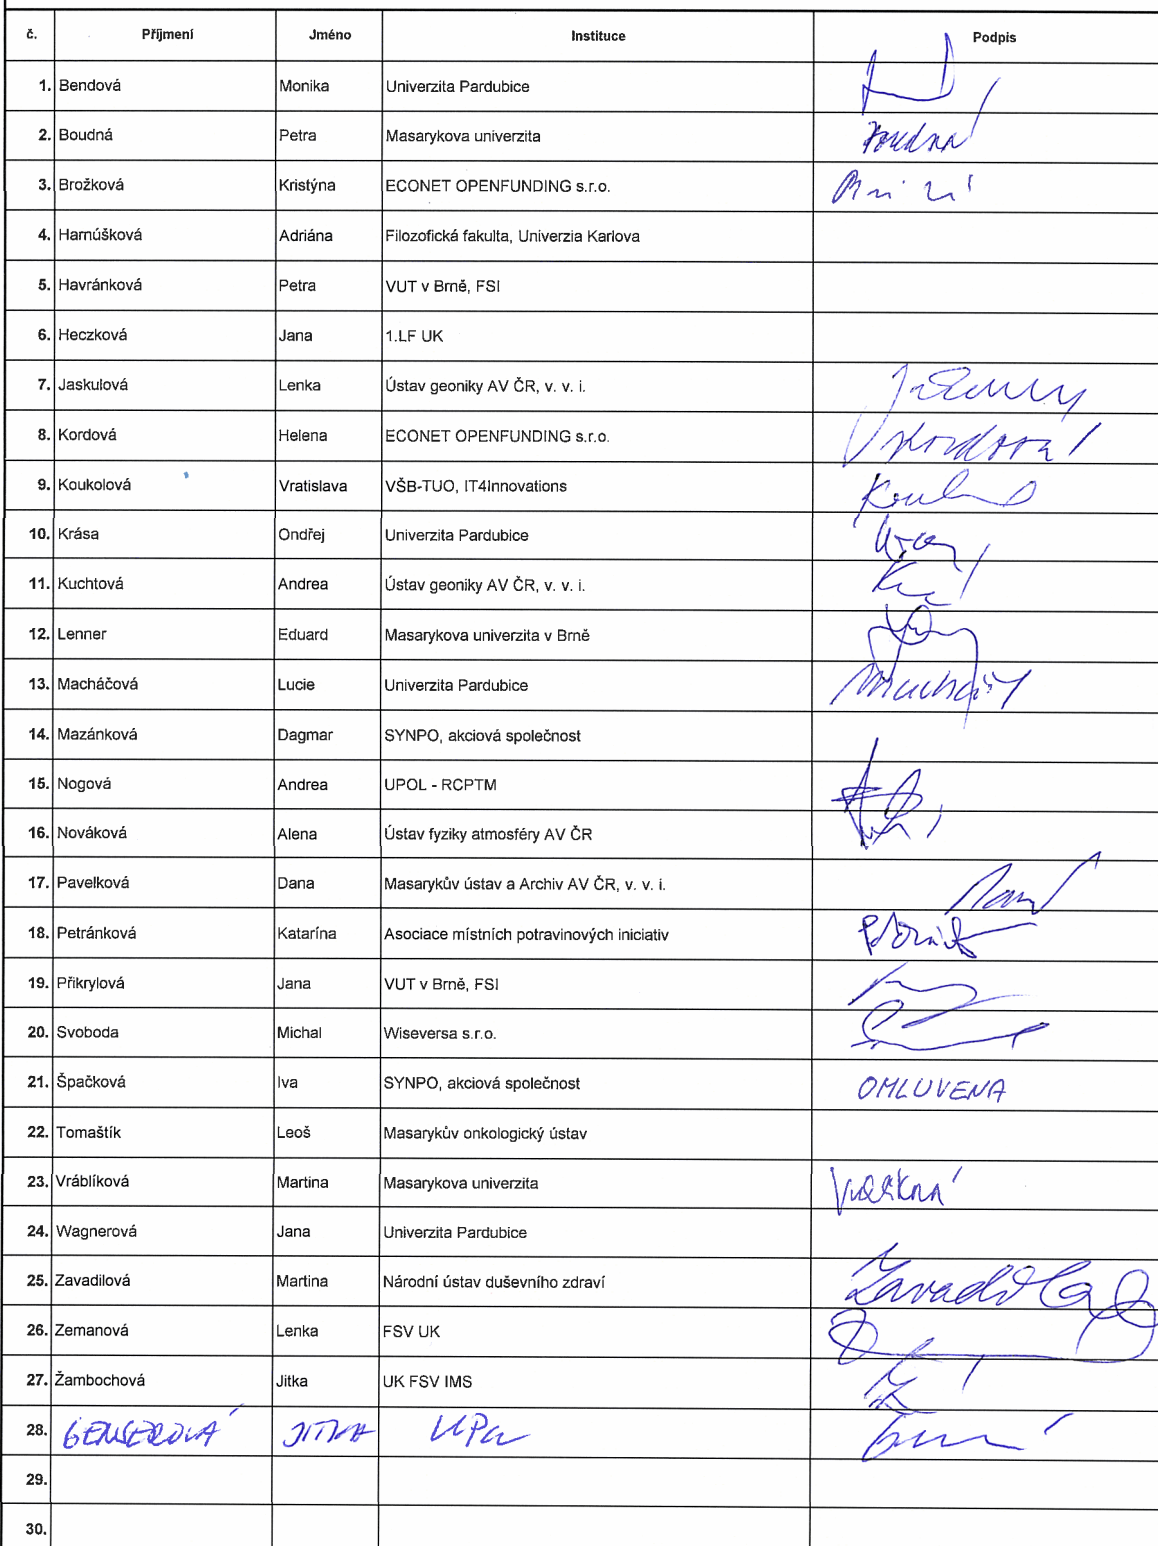 č. Příjmení Jméno Instituce Podpis
1. Bendová Monika Univerzita Pardubice
2. Boudná Petra Masarykova univerzita
3. Brožková Kristýna ECONET OPENFUNDING s.r.o.
4. Harnúšková Adriána Filozofická fakulta, Univerzia Karlova
5. Havránková Petra VUT v Brně, FSI
6. Heczková Jana 1.LF UK
7. Jaskulová Lenka Ústav geoniky AV ČR, v. v. i.
8. Kordová Helena ECONET OPENFUNDING s.r.o. Kordová
9. Koukolová Vratislava VŠB-TUO, IT4Innovations
10. Krása Ondřej Univerzita Pardubice
11. Kuchtová Andrea Ústav geoniky AV ČR, v. v. i.
12. Lenner Eduard Masarykova univerzita v Brně
13. Macháčová Lucie Univerzita Pardubice
14. Mazánková Dagmar SYNPO, akciová společnost
15. Nogová Andrea UPOL - RCPTM
16. Nováková Alena Ústav fyziky atmosféry AV ČR
17. Pavelková Dana Masarykův ústav a Archiv AV ČR, v. v. i.
18. Petránková Katarína Asociace místních potravinových iniciativ
19. Přikrylová Jana VUT v Brně, FSI
20. Svoboda Michal Wiseversa s.r.o.
21. Špačková Iva SYNPO, akciová společnost OMLUVENA
22. Tomaštík Leoš Masarykův onkologický ústav
23. Vráblíková Martina Masarykova univerzita
24. Wagnerová Jana Univerzita Pardubice
25. Zavadilová Martina Národní ústav duševního zdraví
26. Zemanová Lenka FSV UK
27. Žambochová Jitka UK FSV IMS
28. JITKA UPa
29.
30.